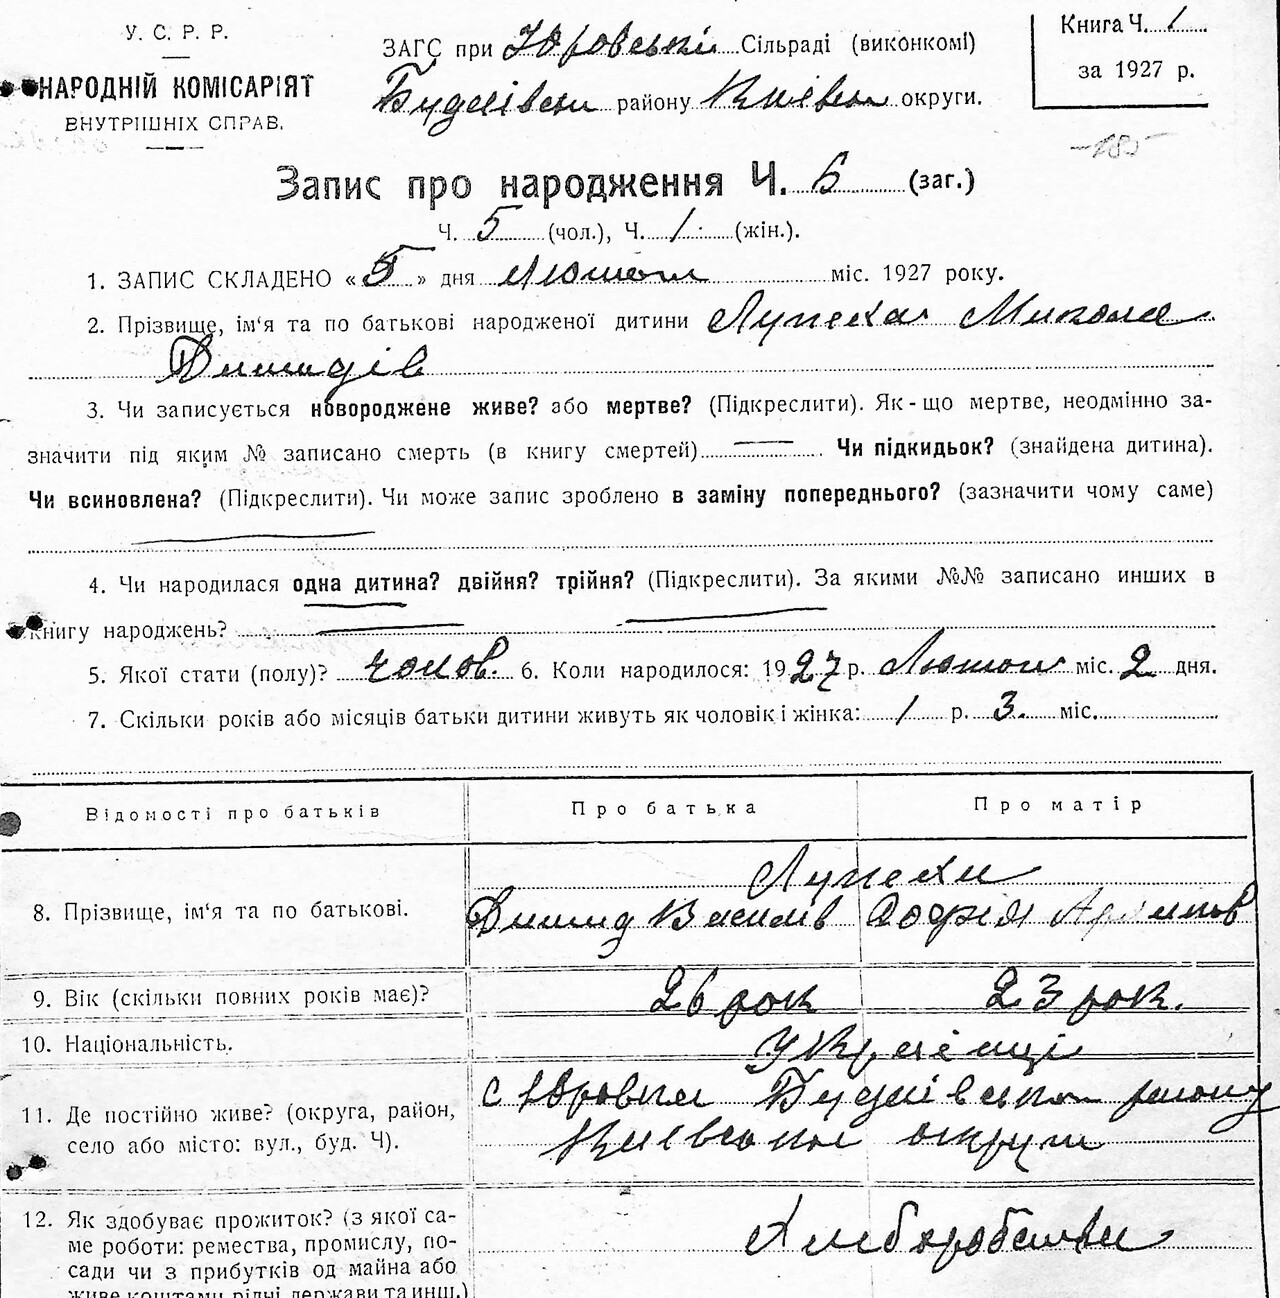 У. С. Р. Р.
НАРОДНІЙ КОМІСАРІЯТ
ВНУТРІШНІХ СПРАВ.
ЗАГС при Юровській Сільраді (виконкомі)
району Київськ округи.
Книга Ч. 1
за 1927 р.
185
Запис про народження Ч. 6 (заг.)
Ч. 5 (чол.), Ч. 1 (жін.).
1. ЗАПИС СКЛАДЕНО «5» дня Лютого міс. 1927 року.
2. Прізвище, ім'я та по батькові народженої дитини Лупеха Микола
Демидів
3. Чи записується новороджене живе? або мертве? (Підкреслити). Як-що мертве, неодмінно за-
значити під яким № записано смерть (в книгу смертей) Чи підкидьок? (знайдена дитина).
Чи всиновлена? (Підкреслити). Чи може запис зроблено в заміну попереднього? (зазначити чому саме)
4. Чи народилася одна дитина? двійня? трійня? (Підкреслити). За якими №№ записано инших в
книгу народжень?
5. Якої стати (полу)? чолов. 6. Коли народилося: 1927 р. Лютого міс. 2 дня.
7. Скільки років або місяців батьки дитини живуть як чоловік і жінка: 1 р. 3. міс.
Відомості про батьків
Про батька
Про матір
8. Прізвище, ім'я та по батькові.
Лупехи
Демид Василів
София Архипов
9. Вік (скільки повних років має)?
26 рок
23 рок.
10. Національність.
Українці
11. Де постійно живе? (округа, район,
село або місто: вул., буд. Ч).
с Юровка району
Київської округи
12. Як здобуває прожиток? (з якої са-
ме роботи: ремества, промислу, по-
сади чи з прибутків од майна або
живе коштами рідні держави та инш.)
Хлиборобства